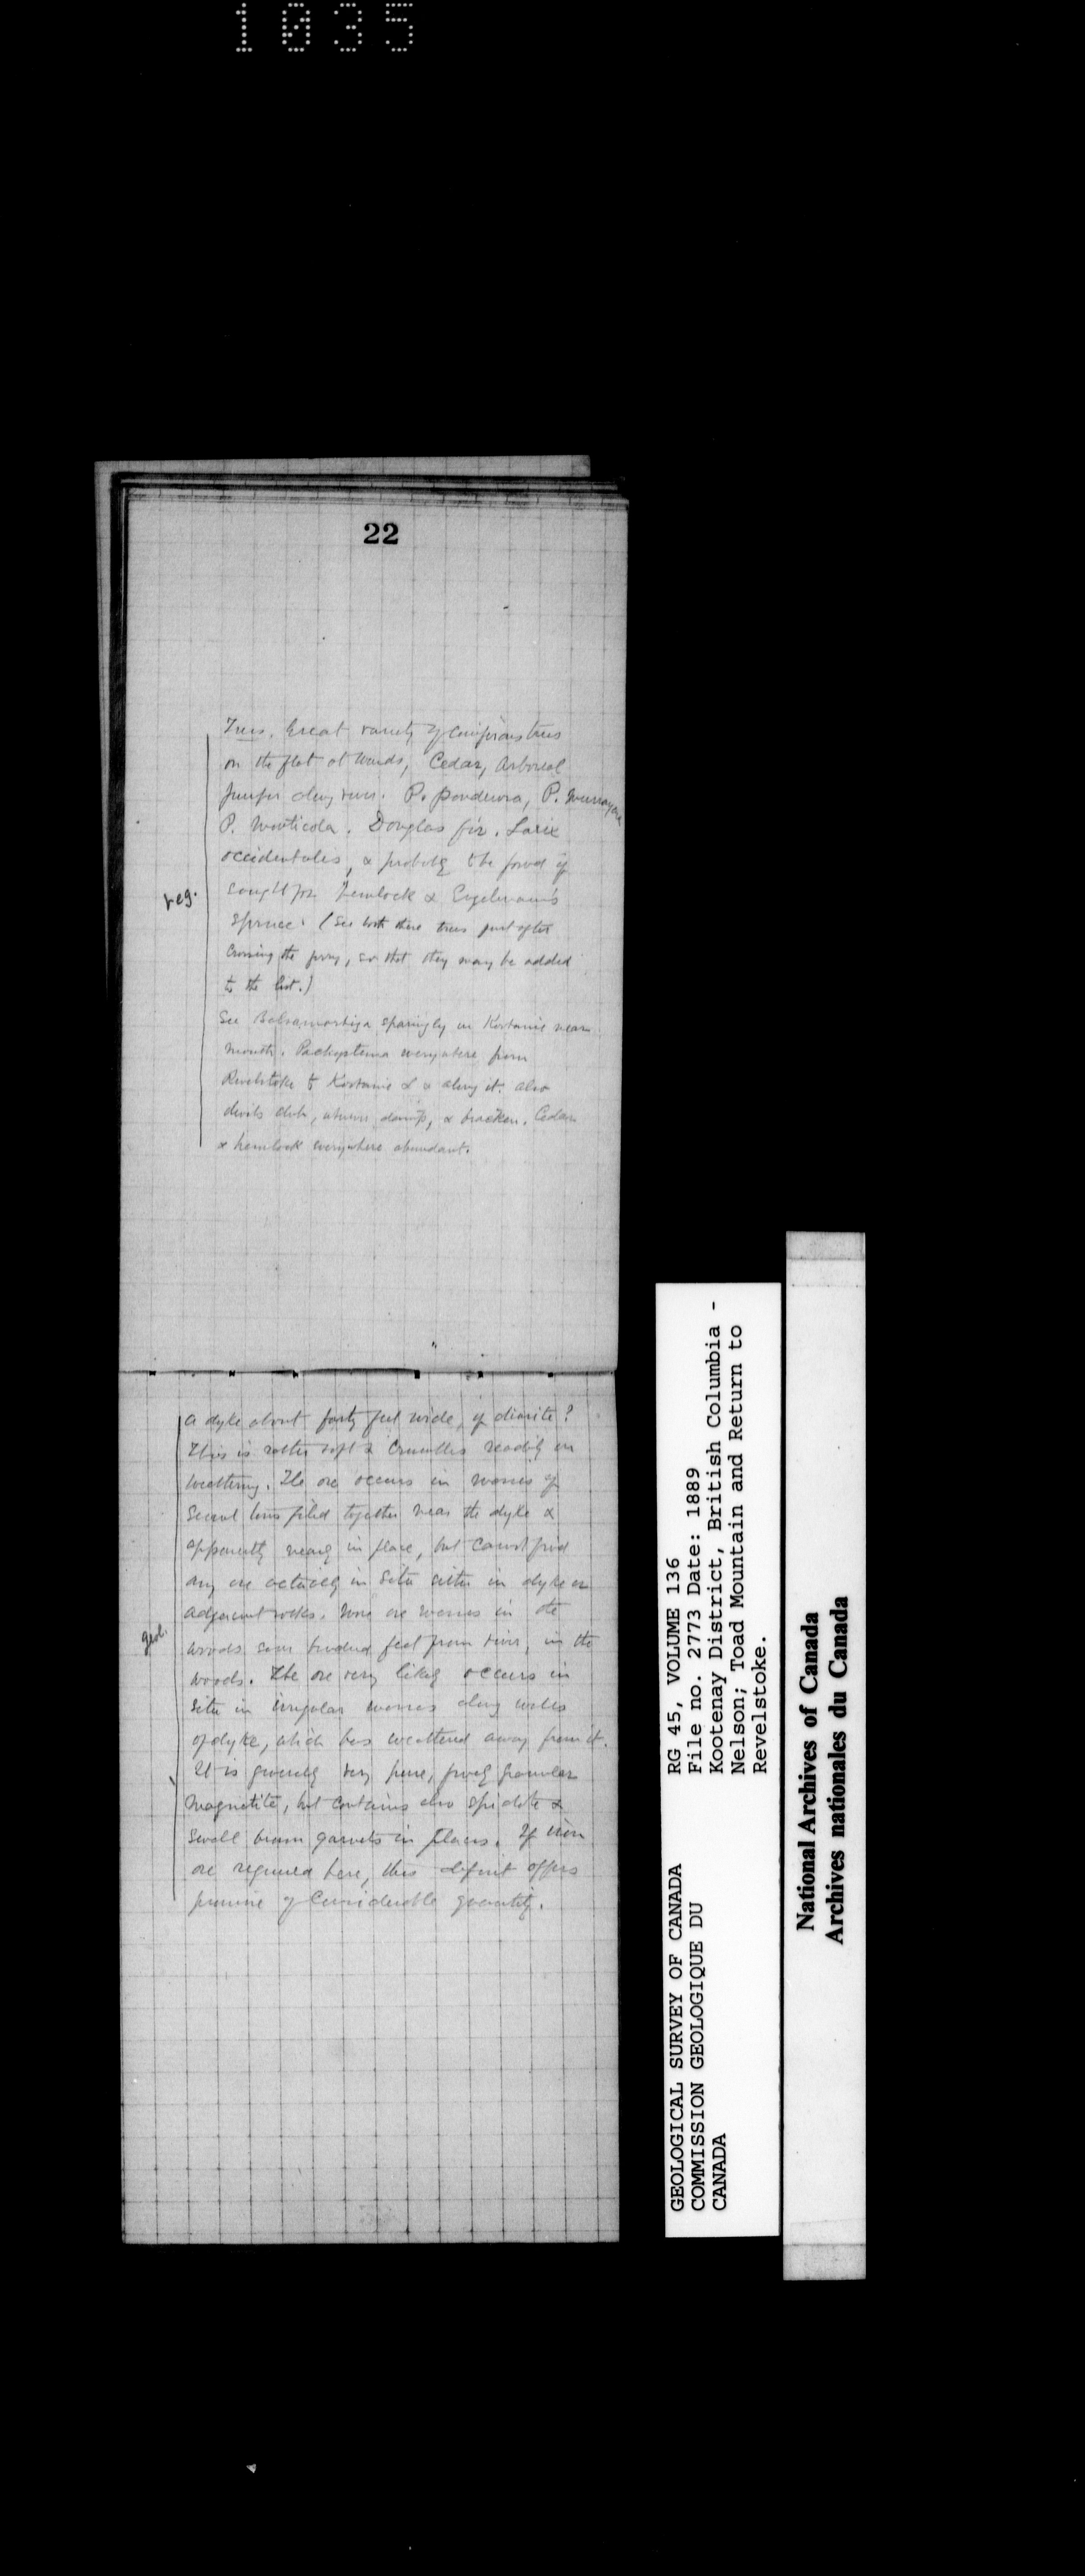 1035
22
Trees. Great variety of coniferous trees
on the flat at Wards, Cedar, Arboreal
Juniper along river. P. ponderosa, P. Murrayana
P. Monticola. Douglas fir. Larix
occidentalis, & probably to be found if
veg.
sought for Hemlock & Engelmann's
Spruce. (See both these trees just after
crossing the ferry, so that they may be added
to the list.)
See Balsamorhiza sparingly on Kootanie near
mouth. Pachystima everywhere from
Revelstoke to Kootanie L & along it. also
devils club, where damp, & bracken. Cedar
& hemlock everywhere abundant.
a dyke about forty feet wide, of diorite?
This is rather soft & crumbles readily on
weathering. The ore occurs in masses of
several tons piled together near the dyke &
apparently nearly in place, but cannot find
any ore actually in situ either in dyke or
adjacent rocks. More ore masses in the
geol.
woods some hundred feet from river, in the
woods. The ore very likely occurs in
situ in irregular masses along walls
of dyke, which has weathered away from it.
It is generally very pure, granular
magnetite, but contains also epidote &
small brown garnets in places. If iron
ore required here, this deposit offers
promise of considerable quantity.
GEOLOGICAL SURVEY OF CANADA
COMMISSION GEOLOGIQUE DU
CANADA
RG 45, VOLUME 136
File no. 2773 Date: 1889
Kootenay District, British Columbia -
Nelson; Toad Mountain and Return to
Revelstoke.
National Archives of Canada
Archives nationales du Canada